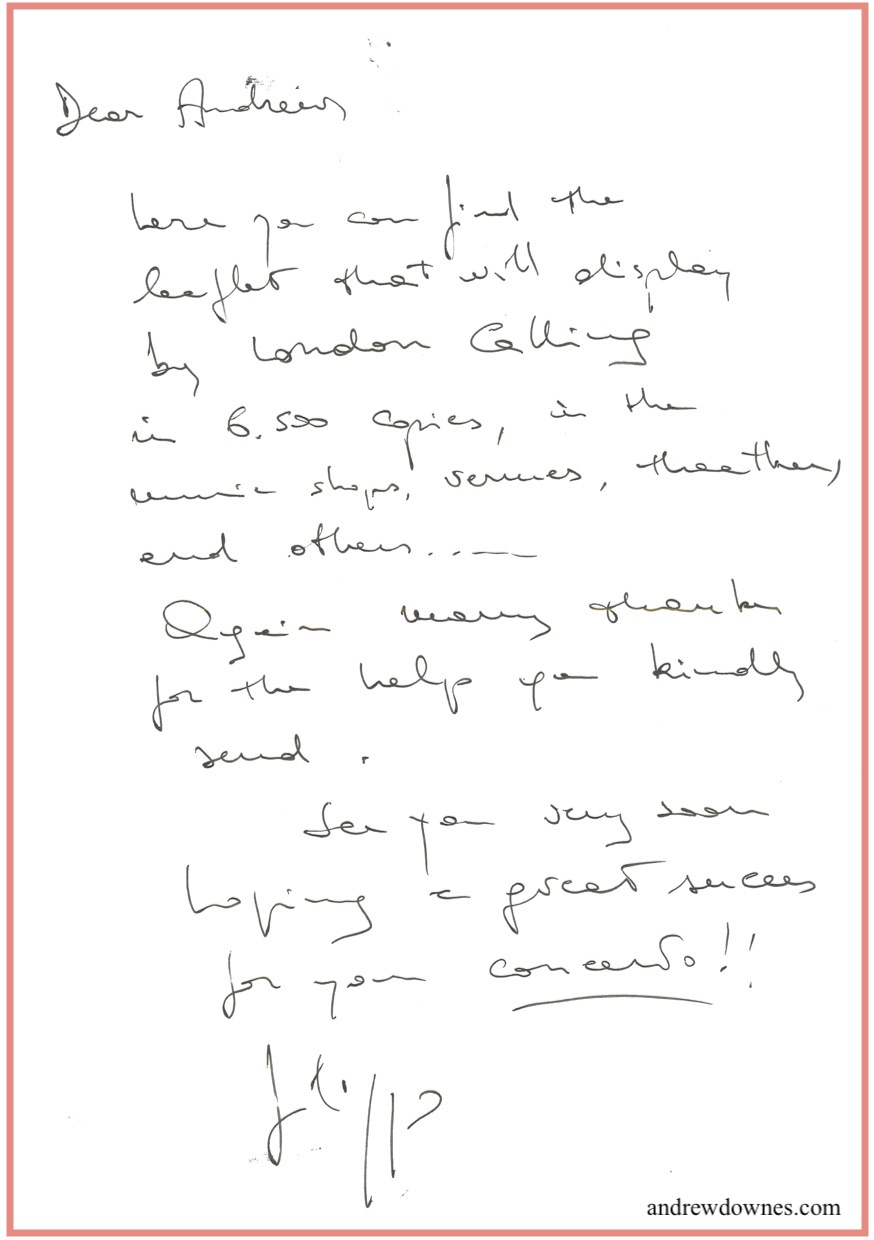 Dear Andrew
here you can find the
leaflet that will display
by London Calling
in 6.500 copies, in the
music shops, venues, theathers,
and others....
Again many thanks
for the help you kindly
send.
See you very soon
hoping a great succes
for your concerto!!
andrewdownes.com